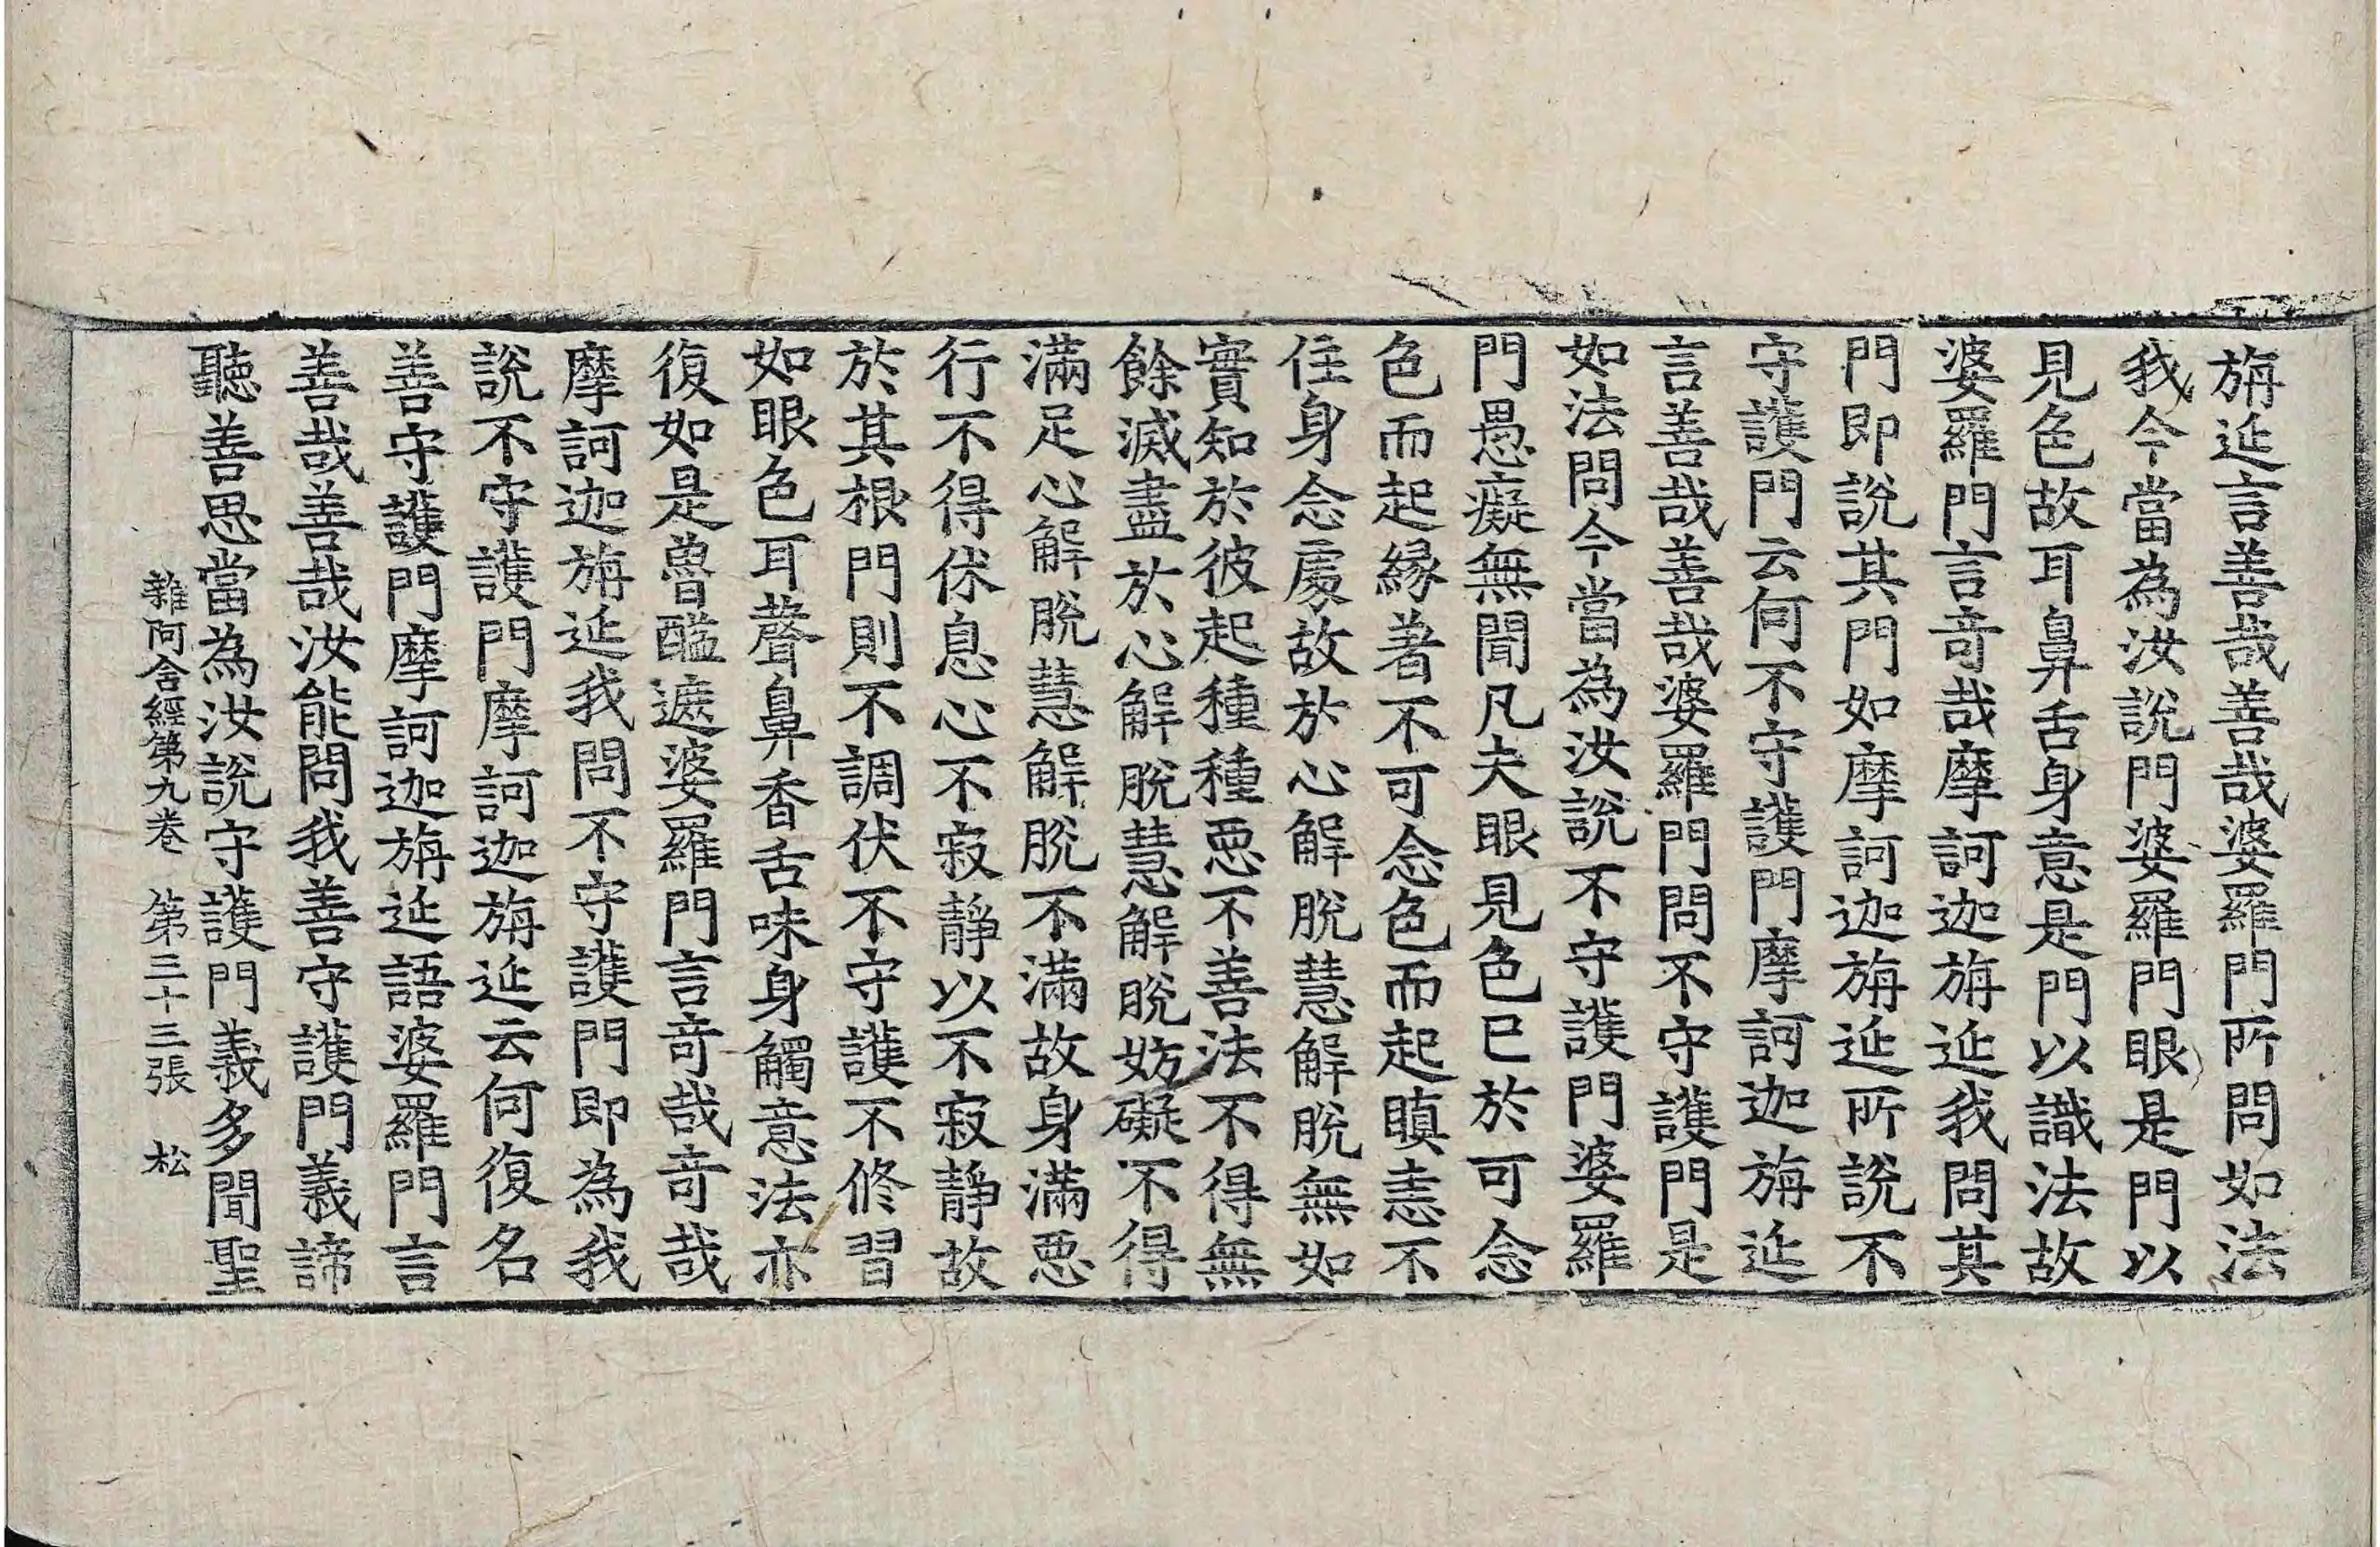 旃延言善哉善哉婆羅門所問如法
我今當為汝說門婆羅門眼是門以
見色故耳鼻舌身意是門以識法故
婆羅門言奇哉摩訶迦旃延我問其
門即說其門如摩訶迦旃延所說不
守護門云何不守護門摩訶迦旃延
言善哉善哉婆羅門問不守護門是
如法問今當為汝說不守護門婆羅
門愚癡無聞凡夫眼見色已於可念
色而起緣著不可念色而起瞋恚不
住身念處故於心解脫慧解脫無如
實知於彼起種種惡不善法不得無
餘滅盡於心解脫慧解脫妨礙不得
滿足心解脫慧解脫不滿故身滿惡
行不得休息心不寂靜以不寂靜故
於其根門則不調伏不守護不修習
如眼色耳聲鼻香舌味身觸意法亦
復如是魯醯遮婆羅門言奇哉奇哉
摩訶迦旃延我問不守護門即為我
說不守護門摩訶迦旃延云何復名
善守護門摩訶迦旃延語婆羅門言
善哉善哉汝能問我善守護門義諦
聽善思當為汝說守護門義多聞聖
雜阿含經第九卷 第三十三張 松